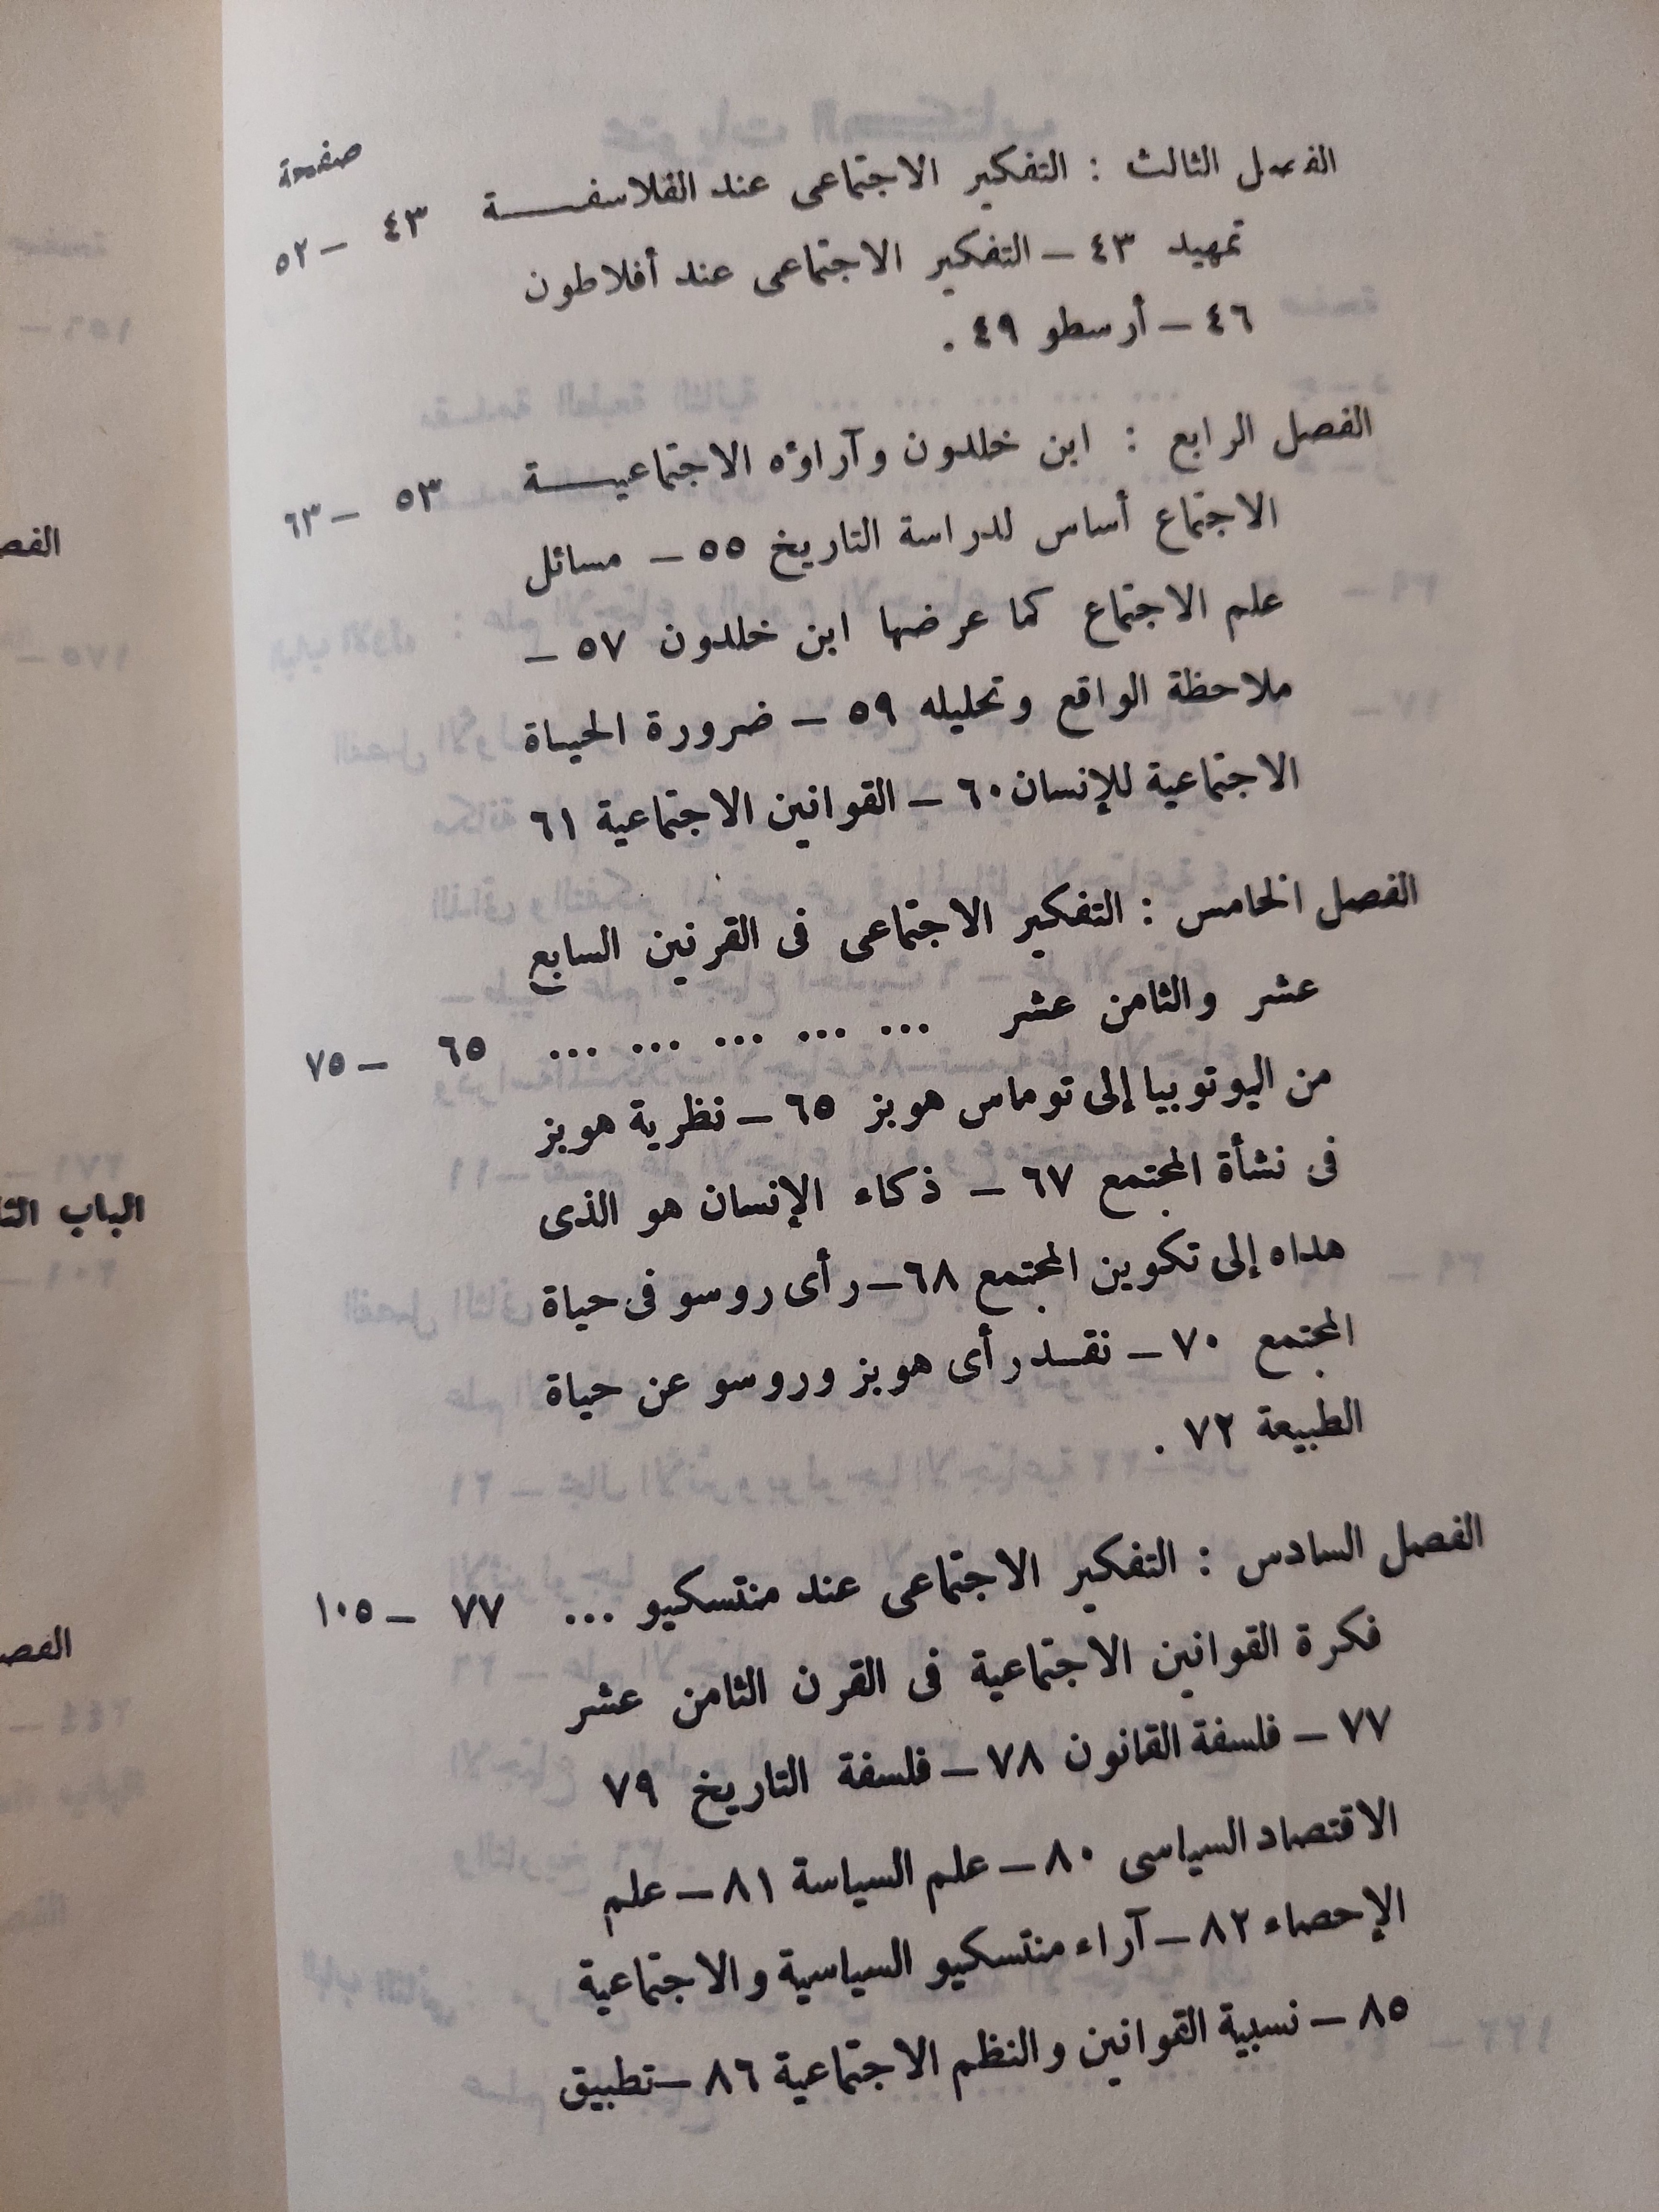 صفحة
الفصل الثالث : التفكير الاجتماعى عند الفلاسفـــــة ٤٣ – ٥٢
تمهيد ٤٣ – التفكير الاجتماعى عند أفلاطون
٤٦ – أرسطو ٤٩ .
الفصل الرابع : ابن خلدون وآراؤه الاجتماعيـــــة ٥٣ – ٦٣
الاجتماع أساس لدراسة التاريخ ٥٥ – مسائل
علم الاجتماع كما عرضها ابن خلدون ٥٧ –
ملاحظة الواقع وتحليله ٥٩ – ضرورة الحياة
الاجتماعية للإنسان ٦٠ – القوانين الاجتماعية ٦١
الفصل الخامس : التفكير الاجتماعى فى القرنين السابع
عشر والثامن عشر ... ... ... ... ... ٦٥ – ٧٥
من اليوتوبيا إلى توماس هوبز ٦٥ – نظرية هوبز
فى نشأة المجتمع ٦٧ – ذكاء الإنسان هو الذى
هداه إلى تكوين المجتمع ٦٨ – رأى روسو فى حياة
المجتمع ٧٠ – نقد رأى هوبز وروسو عن حياة
الطبيعة ٧٢ .
الفصل السادس : التفكير الاجتماعى عند منتسكيو ... ٧٧ – ١٠٥
فكرة القوانين الاجتماعية فى القرن الثامن عشر
٧٧ – فلسفة القانون ٧٨ – فلسفة التاريخ ٧٩
الاقتصاد السياسى ٨٠ – علم السياسة ٨١ – علم
الإحصاء ٨٢ – آراء منتسكيو السياسية والاجتماعية
٨٥ – نسبية القوانين والنظم الاجتماعية ٨٦ – تطبيق
الباب